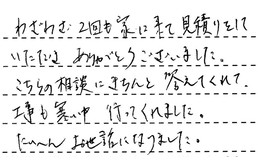 わざわざ2回も家に来て見積りをして
いただき ありがとうございました。
こちらの相談にきちんと 答えてくれて、
工事も寒い中 行ってくれました。
たいへん お世話になりました。